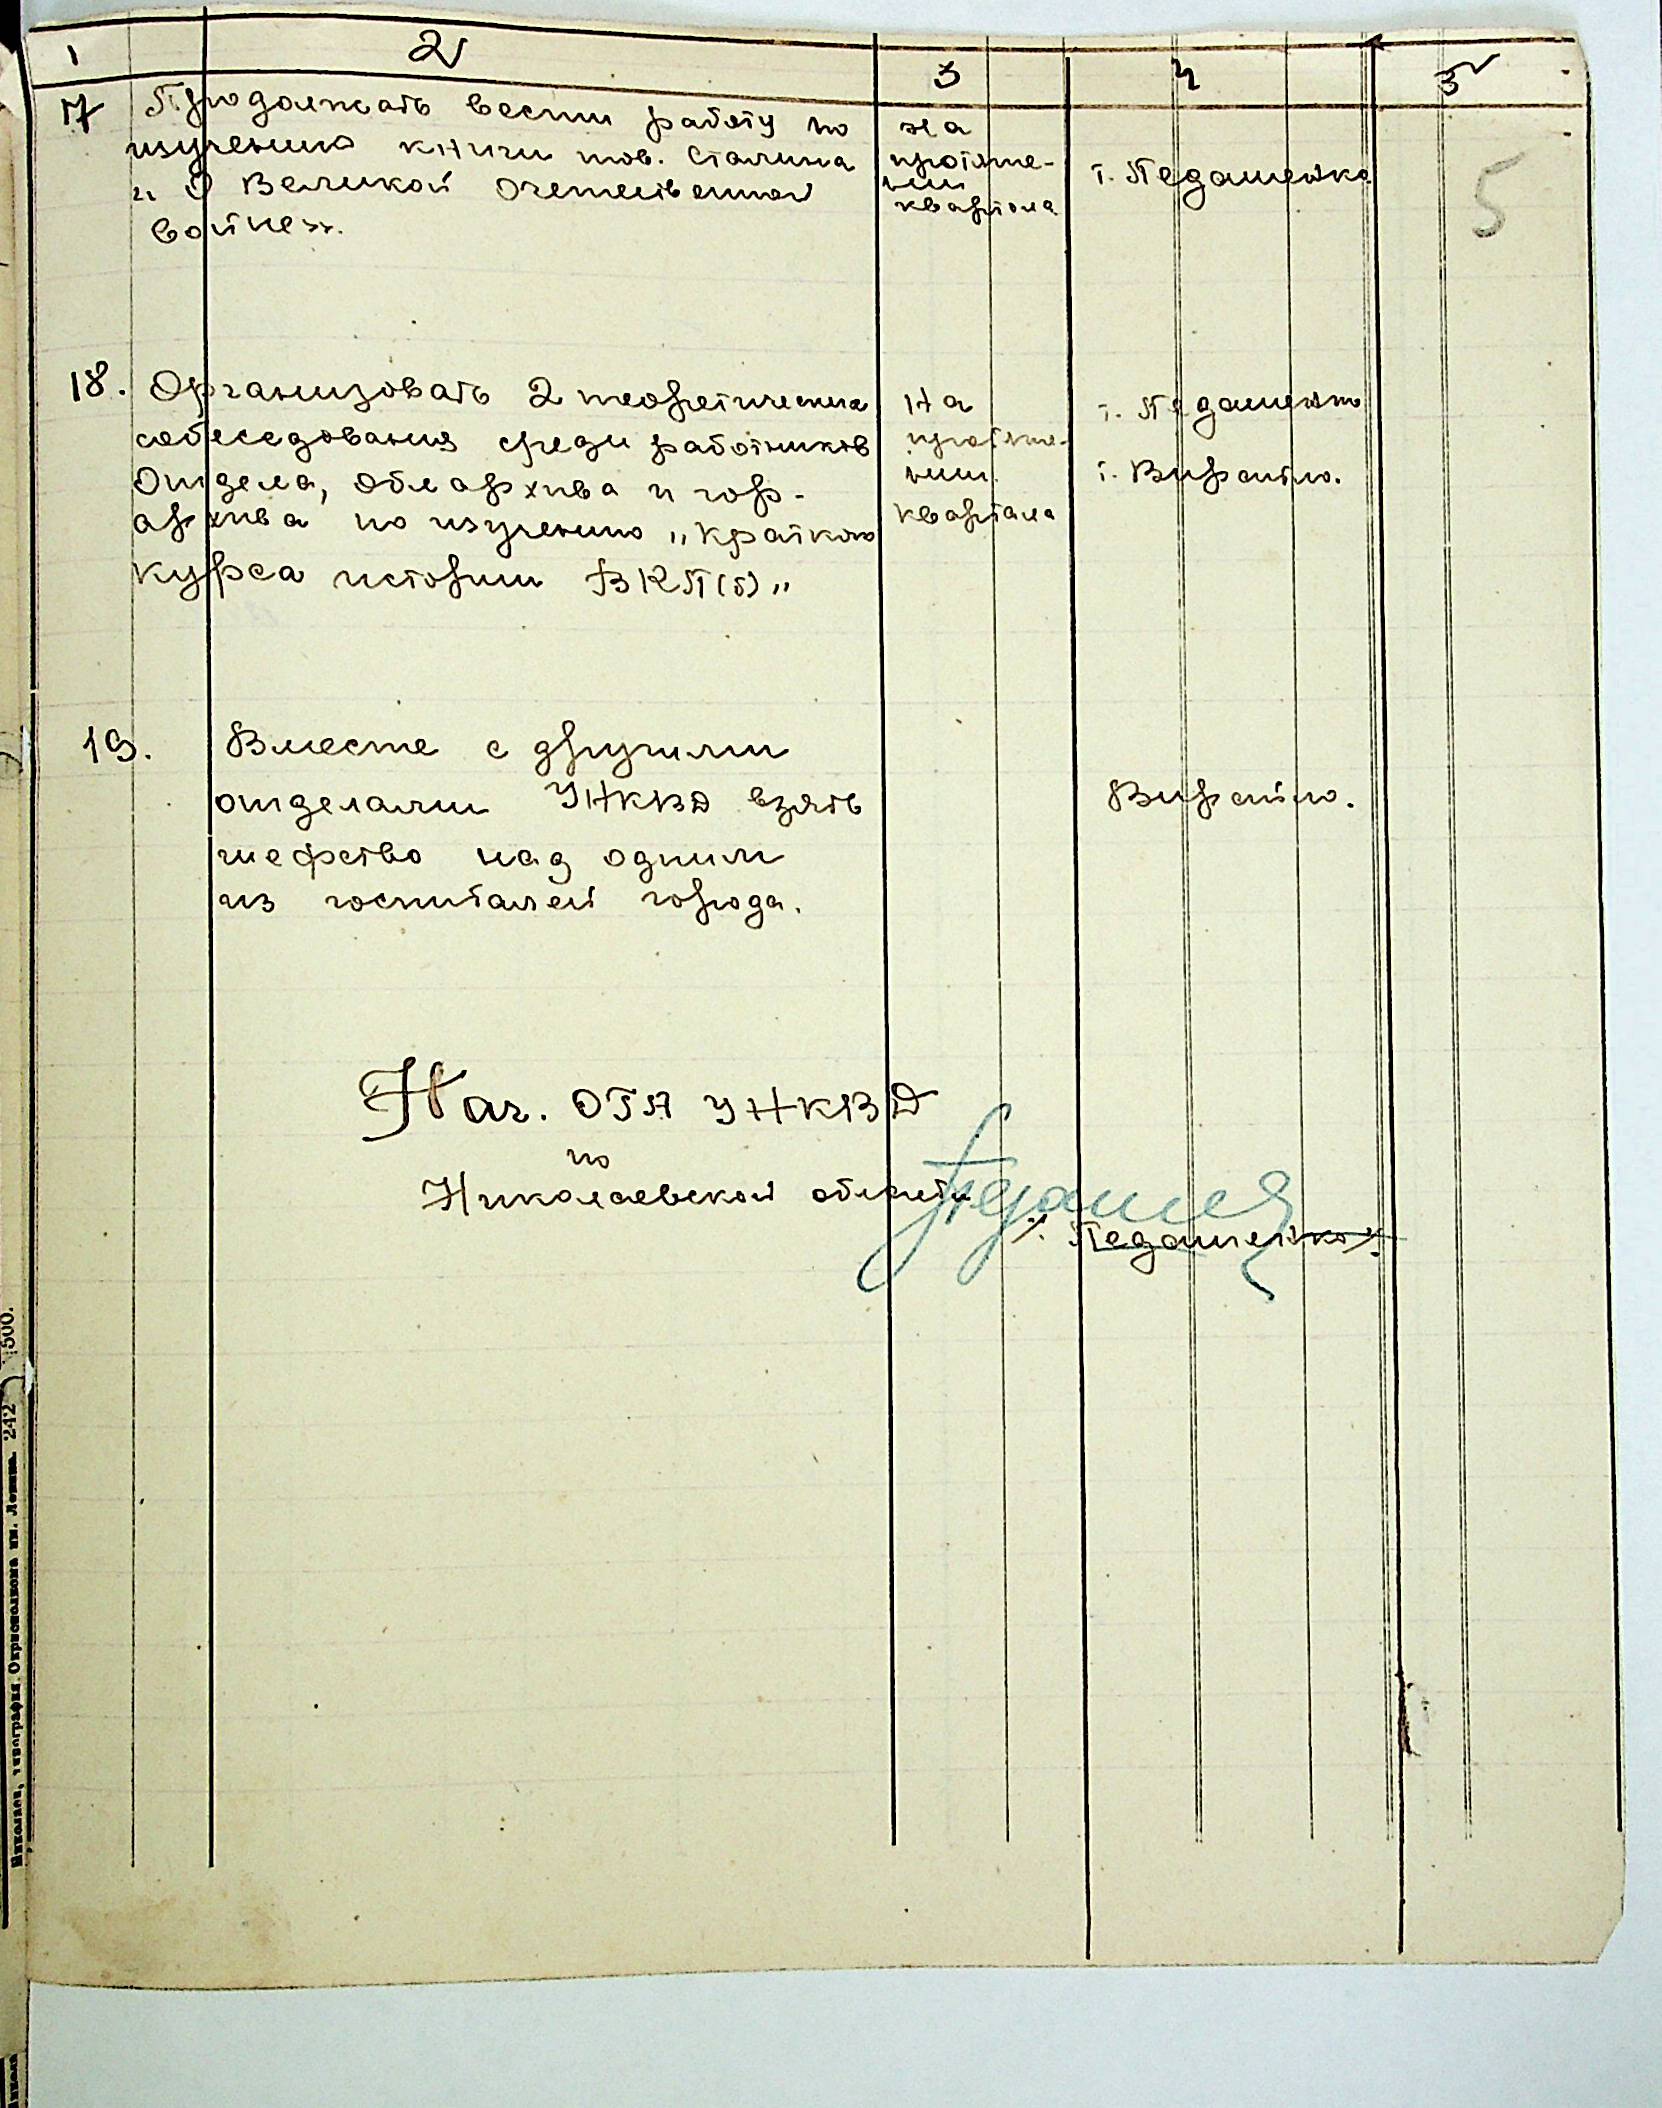 1 2 3 4 5
17 Продолжать вести работу по
изучению книги тов. Сталина
„О Великой Отечественной
войне».
на
протяже-
нии
квартала
т. Педашенко
5
18. Организовать 2 теоретических
собеседования среди работников
Отдела, облархива и гор-
архива по изучению „Краткого
курса истории ВКП(б)„
На
протяже-
нии
квартала
т. Педашенко
т. Вирсийло.
19. Вместе с другими
отделами УНКВД взять
шефство над одним
из госпиталей города.
Вирсийло.
Нач. ОГА УНКВД
по
Николаевской области
/. Педашенко/.
Николаев, типография Окрисполкома им. Ленина. 242 500.